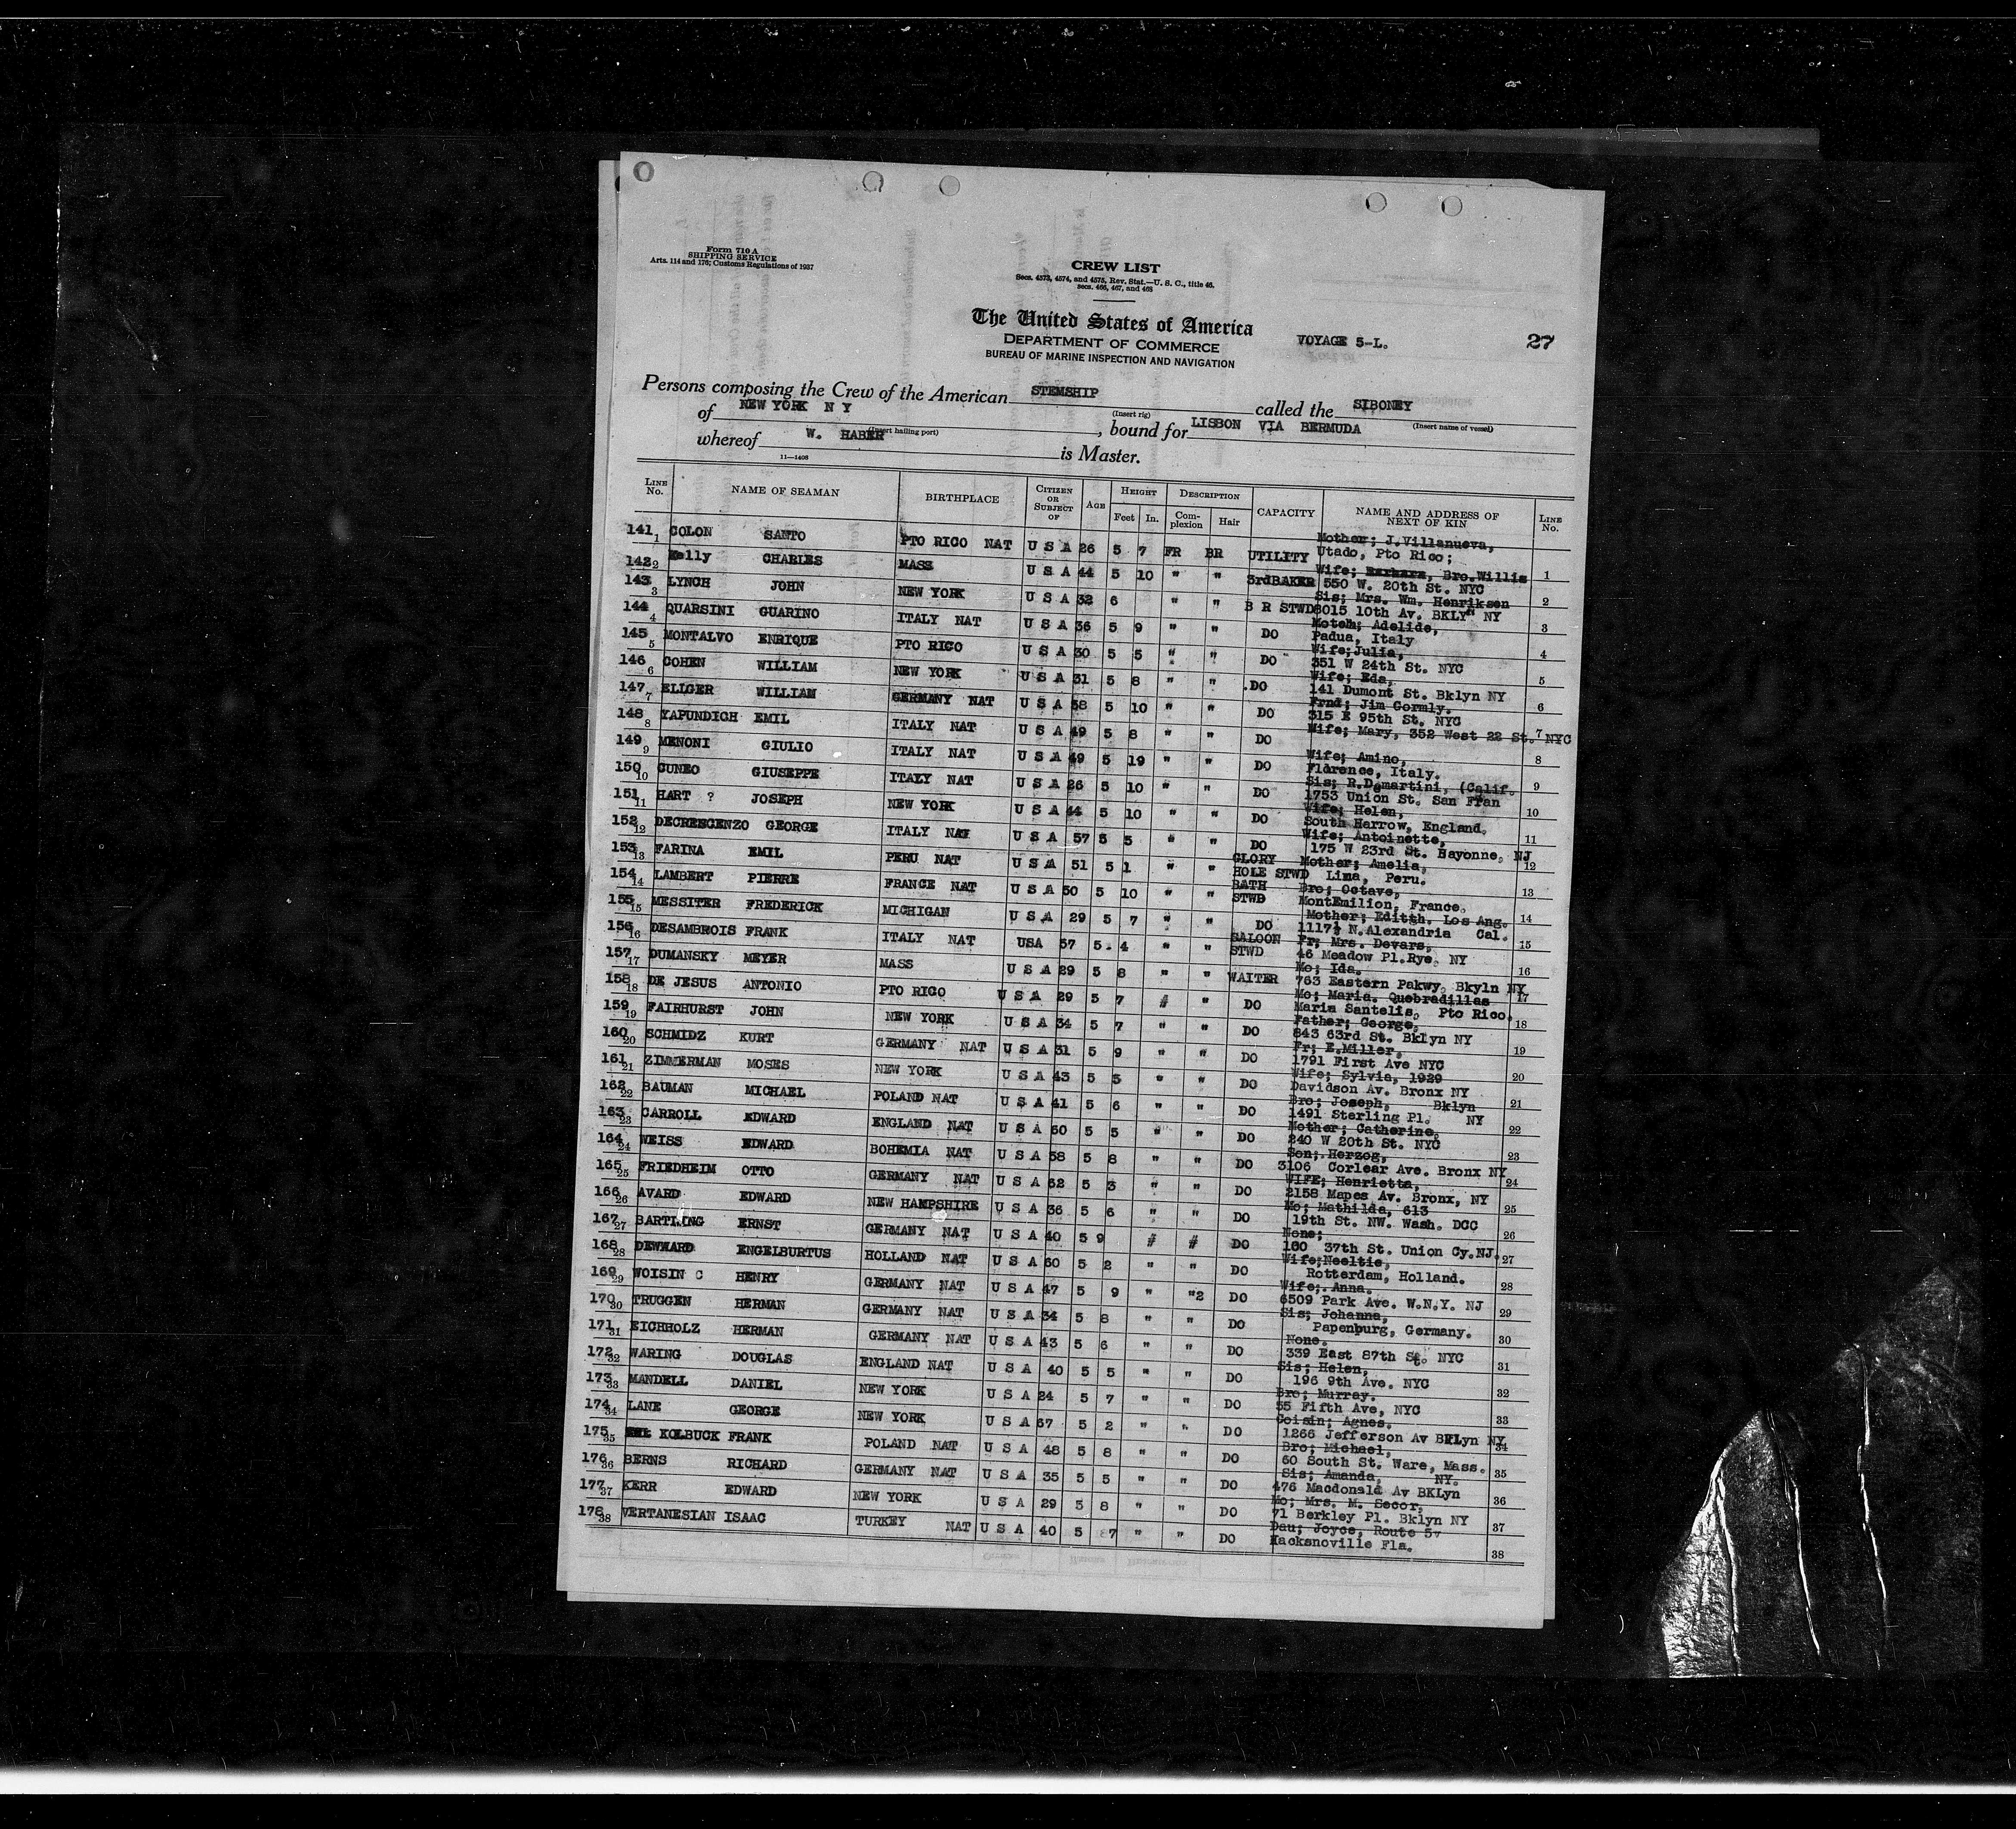 Form 710 A
SHIPPING SERVICE
Arts. 114 and 176; Customs Regulations of 1937
CREW LIST
Secs. 4573, 4574, and 4575, Rev. Stat.—U. S. C., title 46.
secs. 466, 467, and 468
The United States of America
DEPARTMENT OF COMMERCE
BUREAU OF MARINE INSPECTION AND NAVIGATION
VOYAGE 5-L.
27
Persons composing the Crew of the American STEMSHIP called the SIBONEY
(Insert rig) (Insert name of vessel)
of NEW YORK N Y, bound for LISBON VIA BERMUDA
(Insert hailing port)
whereof W. HABER is Master.
11—1408
LINE No. NAME OF SEAMAN BIRTHPLACE CITIZEN OR SUBJECT OF AGE HEIGHT Feet In. DESCRIPTION Complexion Hair CAPACITY NAME AND ADDRESS OF NEXT OF KIN LINE No.
141 1 COLON SANTO PTO RICO NAT U S A 26 5 7 FR BR UTILITY Mother; J.Villanueva, Utado, Pto Rico; 1
142 2 Kelly CHARLES MASS U S A 44 5 10 " " 3rdBAKER Wife; Bro.Willis 550 W. 20th St. NYC 2
143 3 LYNCH JOHN NEW YORK U S A 32 6 " " B R STWD Sis; Mrs. Wm. Henriksen 8015 10th Av. BKLYN NY 3
144 4 QUARSINI GUARINO ITALY NAT U S A 36 5 9 " " DO Moteh; Adelide, Padua, Italy 4
145 5 MONTALVO ENRIQUE PTO RICO U S A 30 5 5 " " DO Wife;Julia, 351 W 24th St. NYC 5
146 6 COHEN WILLIAM NEW YORK U S A 31 5 8 " " .DO Wife; Eda, 141 Dumont St. Bklyn NY 6
147 7 ELIGER WILLIAM GERMANY NAT U S A 58 5 10 " " DO Frnd; Jim Gormly. 315 E 95th St. NYC 7
148 8 YAPUNDICH EMIL ITALY NAT U S A 49 5 8 " " DO Wife; Mary, 352 West 22 St. NYC 8
149 9 MENONI GIULIO ITALY NAT U S A 49 5 19 " " DO Wife; Amino, Florence, Italy. 9
150 10 CUNEO GIUSEPPE ITALY NAT U S A 26 5 10 " " DO Sis; R.Demartini, (Calif. 1753 Union St. San Fran 10
151 11 HART ? JOSEPH NEW YORK U S A 44 5 10 " " DO Wife; Helen, South Harrow, England. 11
152 12 DECRESCENZO GEORGE ITALY NAT U S A 57 5 5 " " DO Wife; Antoinette, 175 W 23rd St. Bayonne, NJ 12
153 13 FARINA EMIL PERU NAT U S A 51 5 1 " " GLORY HOLE STWD Mother; Amelia, Lima, Peru. 13
154 14 LAMBERT PIERRE FRANCE NAT U S A 50 5 10 " " BATH STWD Bro; Octave, MontEmilion, France. 14
155 15 MESSITER FREDERICK MICHIGAN U S A 29 5 7 " " DO Mother; Editth. Los Ang. 1117½ N.Alexandria Cal. 15
156 16 DESAMBROIS FRANK ITALY NAT USA 57 5 4 " " SALOON STWD Fr; Mrs. Devars, 46 Meadow Pl.Rye. NY 16
157 17 DUMANSKY MEYER MASS U S A 29 5 8 " " WAITER Mo; Ida. 763 Eastern Pakwy. Bkyln NY 17
158 18 DE JESUS ANTONIO PTO RICO U S A 29 5 7 # " DO Mo; Maria. Quebradillas Maria Santelis, Pto Rico. 18
159 19 FAIRHURST JOHN NEW YORK U S A 34 5 7 " " DO Father; George, 843 63rd St. Bklyn NY 19
160 20 SCHMIDZ KURT GERMANY NAT U S A 31 5 9 " " DO Fr; E.Miller, 1791 First Ave NYC 20
161 21 ZIMMERMAN MOSES NEW YORK U S A 43 5 5 " " DO Wife; Sylvia, 1929 Davidson Av. Bronx NY 21
162 22 BAUMAN MICHAEL POLAND NAT U S A 41 5 6 " " DO Bro; Joseph, Bklyn 1491 Sterling Pl. NY 22
163 23 CARROLL EDWARD ENGLAND NAT U S A 50 5 5 " " DO Mother; Catherine, 240 W 20th St. NYC 23
164 24 WEISS EDWARD BOHEMIA NAT U S A 58 5 8 " " DO Son; Herzog, 3106 Corlear Ave. Bronx NY 24
165 25 FRIEDHEIM OTTO GERMANY NAT U S A 62 5 3 " " DO WIFE; Henrietta, 2158 Mapes Av. Bronx, NY 25
166 26 AVARD EDWARD NEW HAMPSHIRE U S A 36 5 6 " " DO Mo; Mathilda, 613 19th St. NW. Wash. DCC 26
167 27 BARTLING ERNST GERMANY NAT U S A 40 5 9 # # DO None; 100 37th St. Union Cy.NJ. 27
168 28 DEWAARD ENGELBURTUS HOLLAND NAT U S A 60 5 2 " " DO Wife;Neeltie, Rotterdam, Holland. 28
169 29 WOISIN C HENRY GERMANY NAT U S A 47 5 9 " "2 DO Wife;.Anna. 6509 Park Ave. W.N.Y. NJ 29
170 30 TRUGGEN HERMAN GERMANY NAT U S A 34 5 8 " " DO Sis; Johanna, Papenburg, Germany. 30
171 31 EICHHOLZ HERMAN GERMANY NAT U S A 43 5 6 " " DO None. 339 East 87th St. NYC 31
172 32 WARING DOUGLAS ENGLAND NAT U S A 40 5 5 " " DO Sis; Helen, 196 9th Ave. NYC 32
173 33 MANDELL DANIEL NEW YORK U S A 24 5 7 " " DO Bro; Murray. 55 Fifth Ave, NYC 33
174 34 LANE GEORGE NEW YORK U S A 67 5 2 " " DO Coisin; Agnes. 1266 Jefferson Av BKLyn NY 34
175 35 KOLBUCK FRANK POLAND NAT U S A 48 5 8 " " DO Bro; Michael, 60 South St. Ware, Mass. 35
176 36 BERNS RICHARD GERMANY NAT U S A 35 5 5 " " DO Sis; Amanda, NY. 476 Macdonald Av BKLyn 36
177 37 KERR EDWARD NEW YORK U S A 29 5 8 " " DO Mo; Mrs. M. Secor, 71 Berkley Pl. Bklyn NY 37
178 38 VERTANESIAN ISAAC TURKEY NAT U S A 40 5 7 " " DO Dau; Joyce, Route 5v Hacksnoville Fla. 38